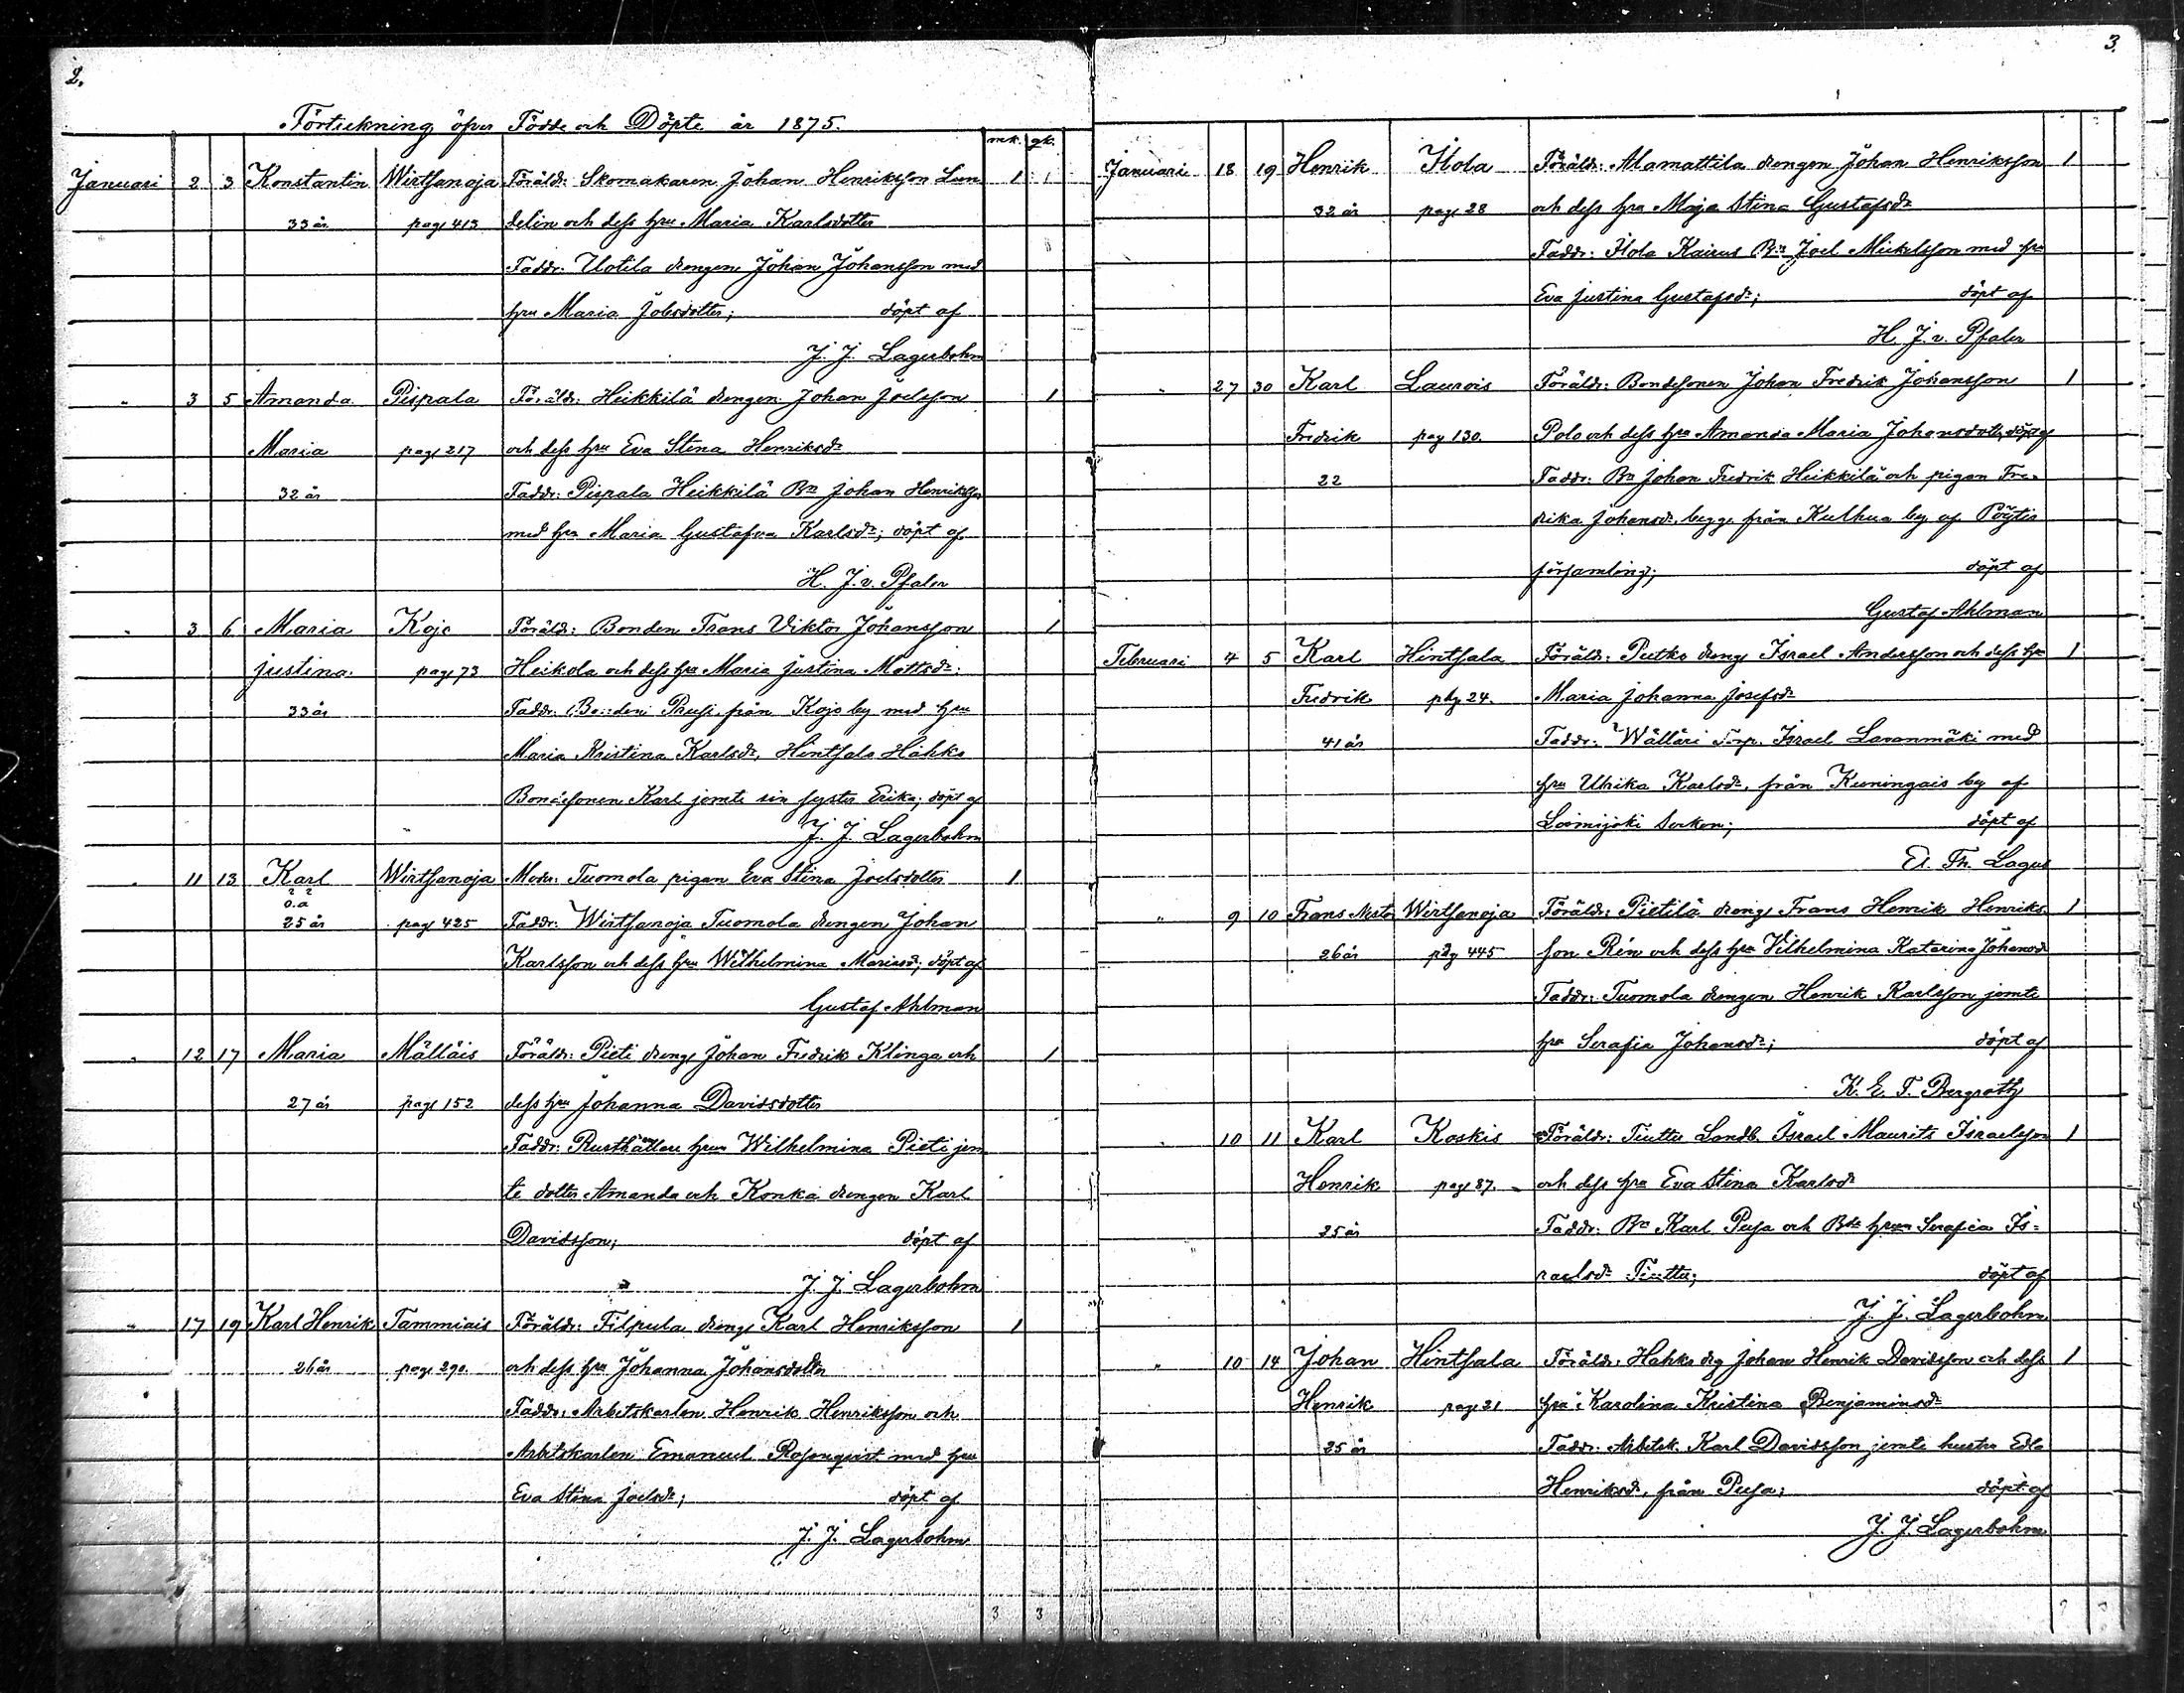 2.
Förteckning öfver Födde och Döpte år 1875.
mk. qk.
Januari 2 3 Konstantin Wirtsanoja Föräldr: Skomakaren Johan Henriksson Lun 1
33 år pag 413 delin och dess hru Maria Karlsdotter
Faddr: Uotila drengen Johan Johansson med
hru Maria Jobsdotter; döpt af
J. J. Lagerbohm
" 3 5 Amanda Pispala Föräldr: Heikkilä drengen Johan Joelsson 1
Maria pag 217 och dess hru Eva Stina Henriksdr
32 år Faddr: Pispala Heikkilä Bn Johan Henriksson
med hru Maria Gustafva Karlsdr; döpt af
H. J. v. Pfaler
" 3 6 Maria Kojo Föräldr: Bonden Frans Viktor Johansson 1
Justina pag 73 Heikola och dess hru Maria Justina Mattsdr:
33 år Faddr: Bonden Prusi från Kojo by med hru
Maria Kristina Karlsdr, Hintsala Hahko
Bondesonen Karl jemte sin syster Erika; döpt af
J. J. Lagerbohm
" 11 13 Karl Wirtsanoja Modr: Tuomola pigan Eva Stina Joelsdotter 1
o.ä
25 år pag 425 Faddr: Wirtsanoja Tuomola drengen Johan
Karlsson och dess hru Wilhelmina Mariasd; döpt af
Gustaf Ahlman
" 12 17 Maria Mälläis Föräldr: Pieti dreng Johan Fredrik Klinga och 1
27 år pag 152 dess hru Johanna Davidsdotter
Faddr: Rusthållare hrun Wilhelmina Pieti jem
te dotter Amanda och Konka drengen Karl
Davidsson; döpt af
J. J. Lagerbohm
" 17 19 Karl Henrik Tammiais Föräldr: Filpula dreng Karl Henriksson 1
26 år pag 290 och dess hru Johanna Johansdotter
Faddr: Arbetskarlen Henrik Henriksson och
Arbetskarlen Emanuel Rosenqvist med hru
Eva Stina Joelsdr; döpt af
J. J. Lagerbohm
3 3
3.
Januari 18 19 Henrik Ilola Föräldr: Alamattila drengen Johan Henriksson 1
32 år pag 28 och dess hru Maja Stina Gustafsdr
Faddr: Ilola Kairus Bn Joel Mickelsson med hru
Eva Justina Gustafsdr; döpt af
H. J. v. Pfaler
" 27 30 Karl Laurois Föräldr: Bondesonen Johan Fredrik Johansson 1
Fredrik pag 130. Polo och dess hru Amanda Maria Johansdotter, döpt af
22 Faddr: Bn Johan Fredrik Heikkilä och pigan Fre-
drika Johansdr, begge från Kulhua by af Pöytis
församling; döpt af
Gustaf Ahlman
Februari 4 5 Karl Hintsala Föräldr: Putko dreng Israel Andersson och dess hru 1
Fredrik pag 24. Maria Johanna Josefsdr
41 år Faddr: Wälläri Torp. Israel Lavanmäki med
hru Ulrika Karlsdr, från Kuningais by af
Loimijoki socken; döpt af
El. Th. Lagus
" 9 10 Frans Nestor Wirtsanoja Föräldr: Pietilä dreng Frans Henrik Henriks- 1
26 år pag 445 son Rén och dess hru Vilhelmina Katarina Johansdr
Faddr: Tuomola drengen Henrik Karlsson jemte
hru Serafia Johansdr; döpt af
K. E. F. Bergroth
" 10 11 Karl Koskis Föräldr: Tiuttu Landb. Israel Maurits Israelsson 1
Henrik pag 87. och dess hru Eva Stina Karlsdr
25 år Faddr: Bn Karl Pusa och Bde hrun Serafia Is-
raelsdr Tiuttu; döpt af
J. J. Lagerbohm
" 10 14 Johan Hintsala Föräldr: Hahko drg Johan Henrik Davidsson och dess 1
Henrik pag 21 hru Karolina Kristina Benjaminsdr
25 år Faddr: Arbetsk. Karl Davidsson jemte hustru Edla
Henriksdr, från Pusa; döpt af
J. J. Lagerbohm